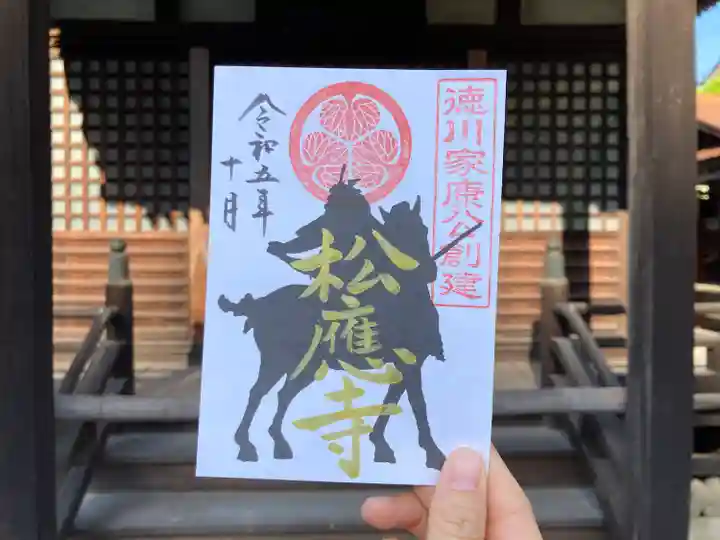 徳川家康公創建
松應寺
令和五年
十月